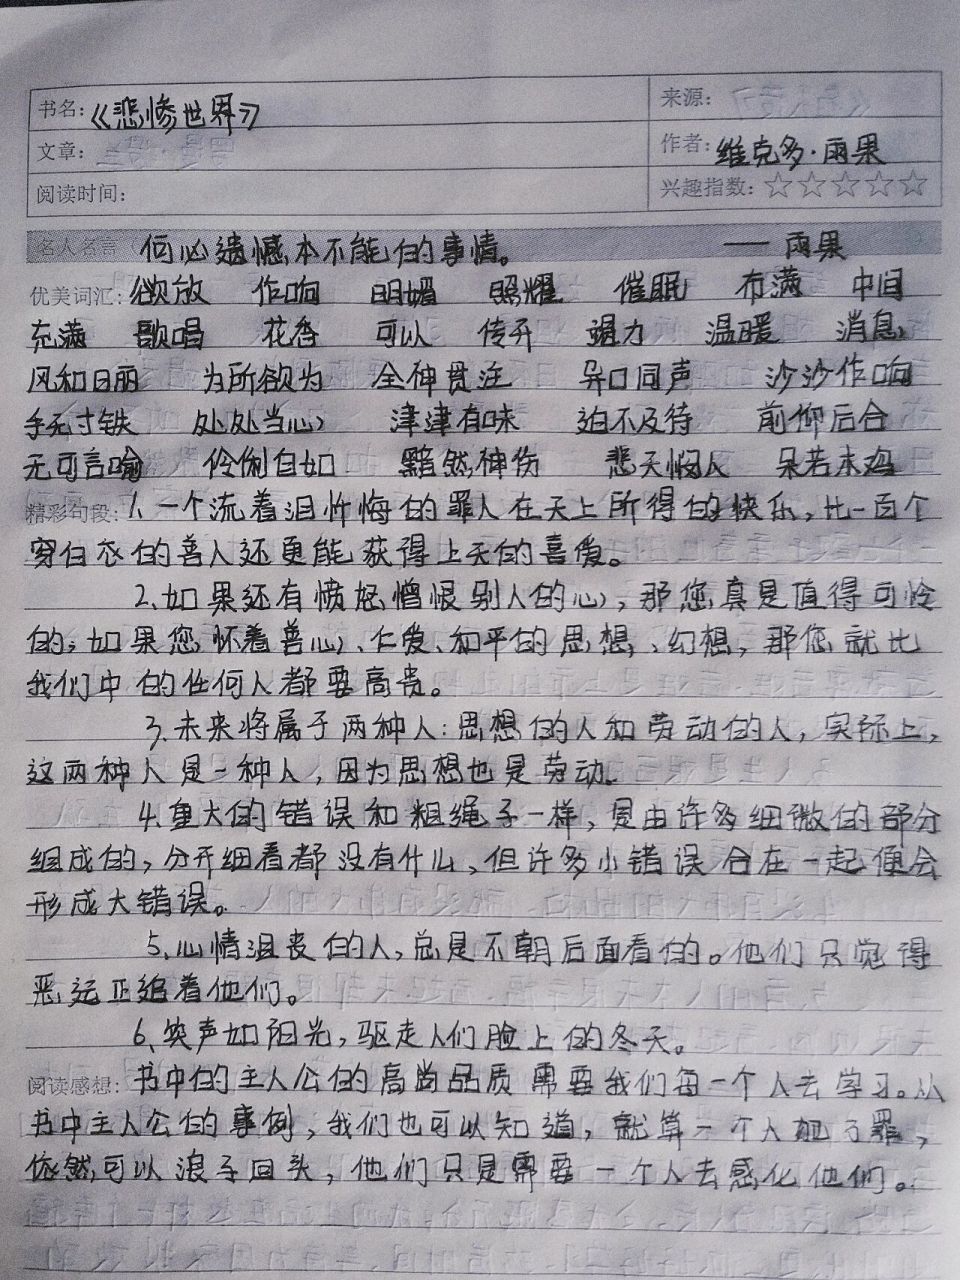 书名:《悲惨世界》 来源:
文章: 作者:维克多·雨果
阅读时间: 兴趣指数:☆☆☆☆☆
名人名言 何必遗憾本不能在的事情。 ——雨果
优美词汇: 欲放 作响 明媚 照耀 催眠 布满 中间
充满 歌唱 花香 可以 传开 竭力 温暖 消息
风和日丽 为所欲为 全神贯注 异口同声 沙沙作响
手无寸铁 处处当心 津津有味 迫不及待 前仰后合
无可言喻 伶俐自如 黯然神伤 悲天悯人 呆若木鸡
精彩句段: 1、一个流着泪忏悔的罪人在天上所得的快乐,比一百个
穿白衣的善人还更能获得上天的喜爱。
2、如果还有愤怒憎恨别人的心,那您真是值得可怜
的,如果您怀着善心、仁爱、和平的思想、幻想,那您就比
我们中的任何人都要高贵。
3、未来将属于两种人:思想的人和劳动的人,实际上,
这两种人是一种人,因为思想也是劳动。
4、重大的错误和粗绳子一样,是由许多细微的部分
组成的,分开细看都没有什么,但许多小错误合在一起便会
形成大错误。
5、心情沮丧的人,总是不朝后面看的。他们只觉得
恶运正追着他们。
6、笑声如阳光,驱走人们脸上的冬天。
阅读感想: 书中的主人公的高尚品质需要我们每一个人去学习。从
书中主人公的事例,我们也可以知道,就算一个人犯了罪,
依然可以浪子回头,他们只是需要一个人去感化他们。